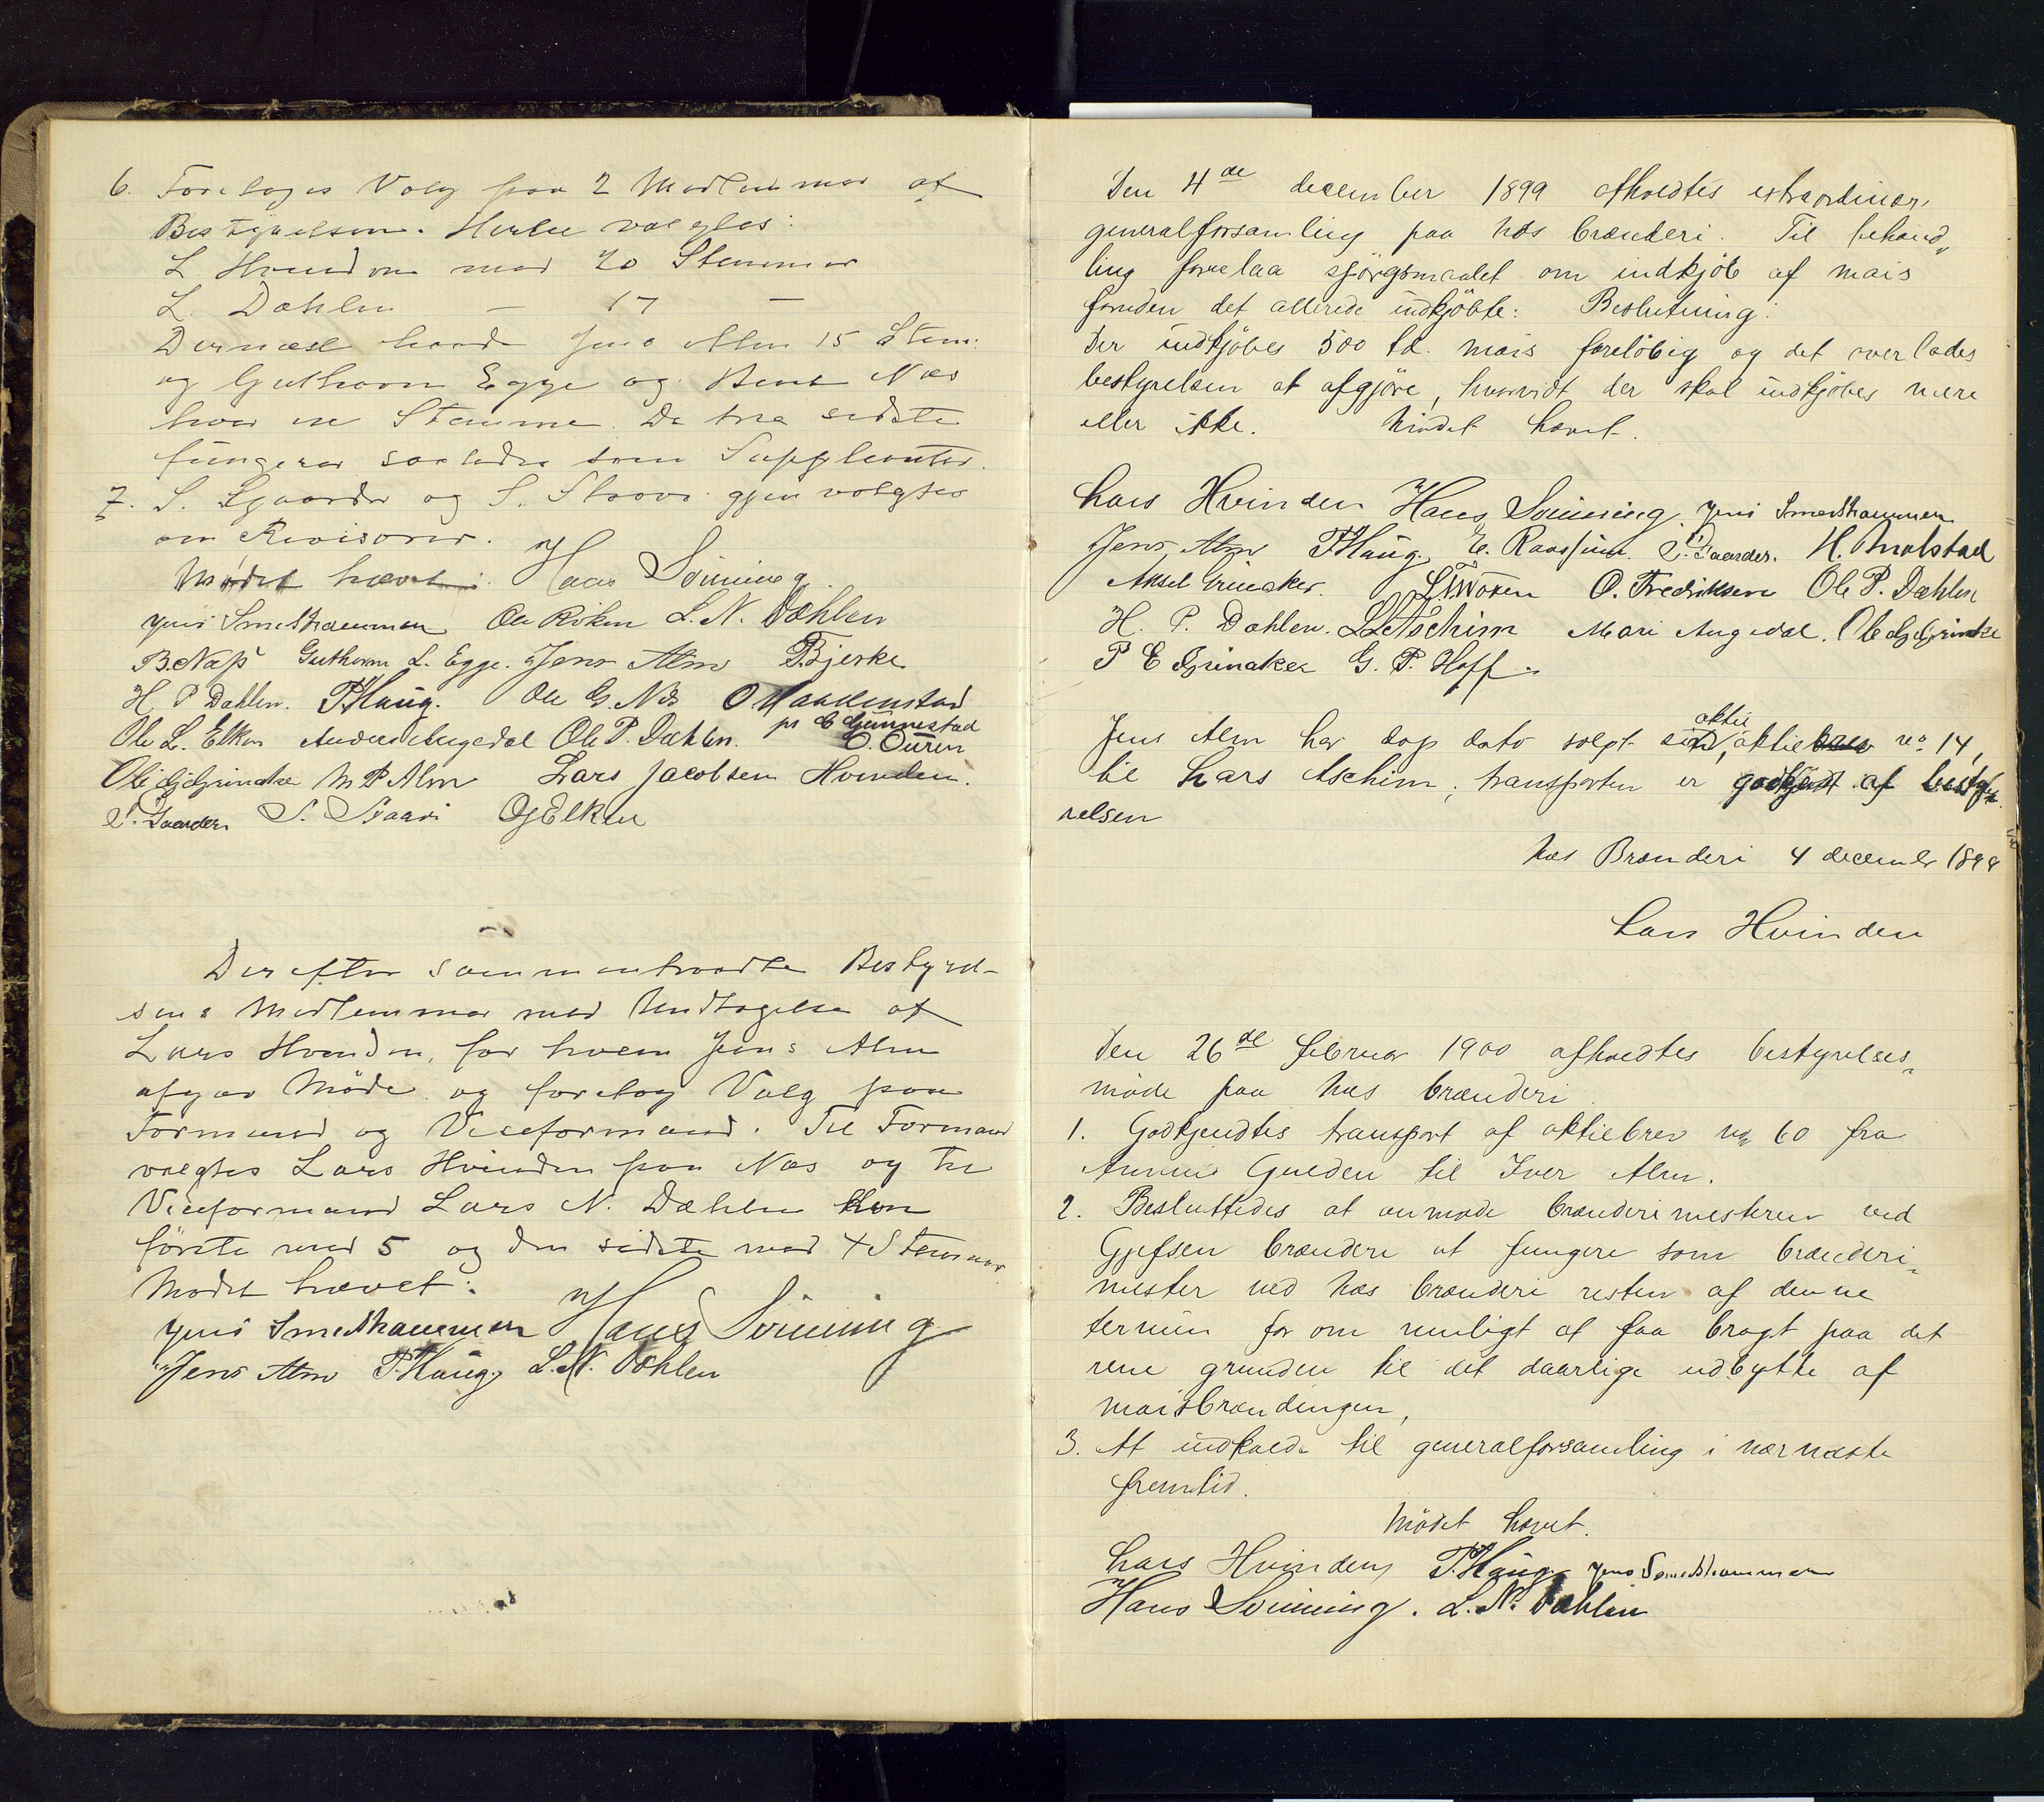 6. Foretoges Valg paa 2 Medlemmer af
Bestyrelsen. Hertil valgtes:
L. Hvinden med 20 Stemmer
L. Dæhlen — 17 —
Dernæst havde Jens Alm 15 Stem:
og Guthorm Egge og Bent Næs
hver en Stemme. De tre sidste
fungerer saaledes som Suppleanter.
7. S. Gaarder og S. Staavi gjenvalgtes
om Revisorer.
Mødet hævet. Hans Sönning
Jens Smedshammen Ole Röken L. N. Dæhlen
B Næss Guthorm L. Egge. Jens Alm Bjerke
H. P Dæhlen. P Haug. Ole G. Næs O. Haakenstad
pr
Ole L. Elken Anders Augedal Ole P. Dæhlen. O. Ouren
Ole G Grinake M P Alm Lars Jacobsen Hvinden.
S. Gaarder S. Staavi O G Elken
Derefter sammentraadte Bestyrel-
sens Medlemmer med Undtagelse af
Lars Hvinden, for hvem Jens Alm
afgav Möde og foretog Valg paa
Formand og Viceformand. Til Formand
valgtes Lars Hvinden paa Næs og til
Viceformand Lars N. Dæhlen hin
förste med 5 og den sidste med 4 Stemmer
Mødet hævet.
Jens Smedshammen Hans Sönning
Jens Alm P. Haug. L. N. Dæhlen
Den 4de december 1899 afholdtes extraordinær
generalforsamling paa Næs brænderi. Til behand„
ling forelaa spörgsmaalet om indkjöb af mais
foruden det allerede indkjöbte: Beslutning:
Der indkjöbes 500 td. mais foreløbig og det overlades
bestyrelsen at afgjöre, hvorvidt der skal indkjöbes mere
eller ikke. Mödet hævet.
Lars Hvinden Hans Sönning. Jens Smedshammen
Jens Alm P Haug. E. Raassum S. Gaarder. H. Molstad
Aksel Grinaker. O. Fredriksen Ole P. Dæhlen
H. P. Dæhlen. L. L. Aschim Mari Augedal. Ole G Grinake
P E Grinaker G. P. Hoff.
aktie
Jens Alm har dags dato solgt sin aktiebrev no 14,
til Lars Aschim; transporten er godkjendt af besty„
relsen
Næs Brænderi 4 decembr 1899
Lars Hvinden
Den 26de februar 1900 afholdtes bestyrelses„
möde paa Næs brænderi.
1. Godkjendtes transport af aktiebrev no 60 fra
Gulden til Iver Alm.
2. Besluttedes at anmode brænderimesteren ved
Gjefsen brænderi at fungere som brænderi„
mester ved Næs brænderi resten af denne
termin for om muligt at faa bragt paa det
rene grunden til det daarlige udbytte af
maisbrændingen,
3. At indkalde til generalforsamling i nærmeste
fremtid.
Mödet hævet.
Lars Hvinden P. Haug. Jens Smedshammen
Hans Sönning. L. N. Dæhlen